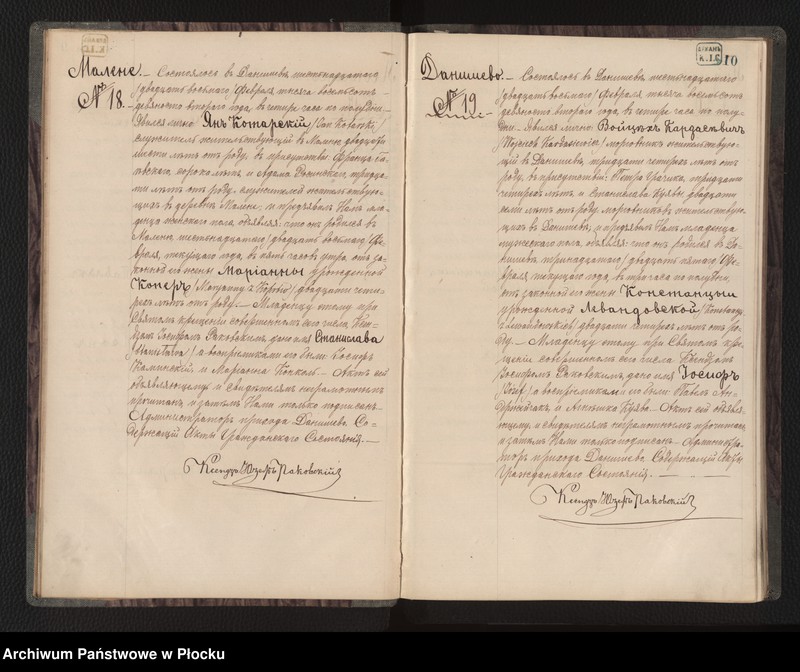 Малене.— Состоялось въ Данишевѣ шестнадцатаго
№ 18.
/двадцать восьмаго/ Февраля тысяча восемьсотъ
девяносто втораго года, въ четыре часа по полудни.—
Явился лично Янъ Котарскій /Jan Kotarski/
служитель жительствующій въ Малене двадцати
лѣтъ отъ роду, въ присутствіи Франца
сорока лѣтъ и Адама
лѣтъ отъ роду служителей жительствую-
щихъ въ деревнѣ Малене, и предъявилъ Намъ мла-
денца мужескаго пола, объявляя: что онъ родился въ
Малене шестнадцатаго /двадцать восьмаго/ Фе-
враля, текущаго года, въ пять часовъ утра, отъ за-
конной его жены Маріанны урожденной
Коперъ /Maryanny z Koprów/ двадцати четы-
рехъ лѣтъ отъ роду.— Младенцу этому при
Святомъ крещеніи совершенномъ сего числа, Ксен-
дзомъ Іосифомъ Раковскимъ, дано имя Станислава
/Stanisława/ а воспріемниками его были: Іосифъ
Каминскій и Маріанна — Актъ сей
объявляющему и свидѣтелямъ неграмотнымъ
прочитанъ, и затѣмъ Нами только подписанъ.
Администраторъ прихода Данишево Со-
держащій Акты Гражданскаго Состоянія.—
Ксендзъ Юзефъ Раковскій
БЕХАНЪ
К.I.G.
10
Данишево.— Состоялось въ Данишевѣ шестнадцатаго
№ 19
/двадцать восьмаго/ Февраля тысяча восемьсотъ
девяносто втораго года, въ четыре часа по полу-
дни.— Явился лично Войцѣхъ Кардасевичъ
/Wojciech Kardasiewicz/ жительствую-
щій въ Данишевѣ, тридцати четырехъ лѣтъ отъ
роду, въ присутствіи: Петра тридцати
четырехъ лѣтъ и Станислава Куявы двадцати
лѣтъ отъ роду жительствую-
щихъ въ Данишевѣ, и предъявилъ Намъ младенца
мужескаго пола, объявляя: что онъ родился въ Да-
нишевѣ тринадцатаго /двадцать пятаго/ Фе-
враля текущаго года, въ три часа по полудни,
отъ законной его жены Констанціи
урожденной Левандовской /Konstancyi
z Lewandowskich/ двадцати четырехъ лѣтъ отъ ро-
ду.— Младенцу этому при Святомъ кре-
щеніи совершенномъ сего числа Ксендзомъ
Іосифомъ Раковскимъ, дано имя Іосифъ
/Józef/ а воспріемниками его были: Павелъ Ан-
дрыйчакъ и Агнѣшка Куява.— Актъ сей объявля-
ющему и свидѣтелямъ неграмотнымъ прочитанъ,
и затѣмъ Нами только подписанъ.— Администра-
торъ прихода Данишево Содержащій Акты
Гражданскаго Состоянія.—
Ксендзъ Юзефъ Раковскій
Archiwum Państwowe w Płocku